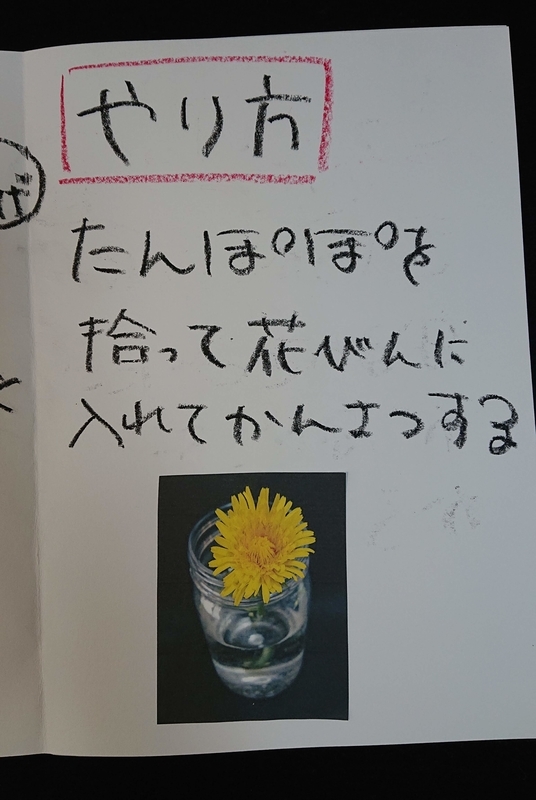 やり方
たんぽぽを
拾って花びんに
入れてかんさつする